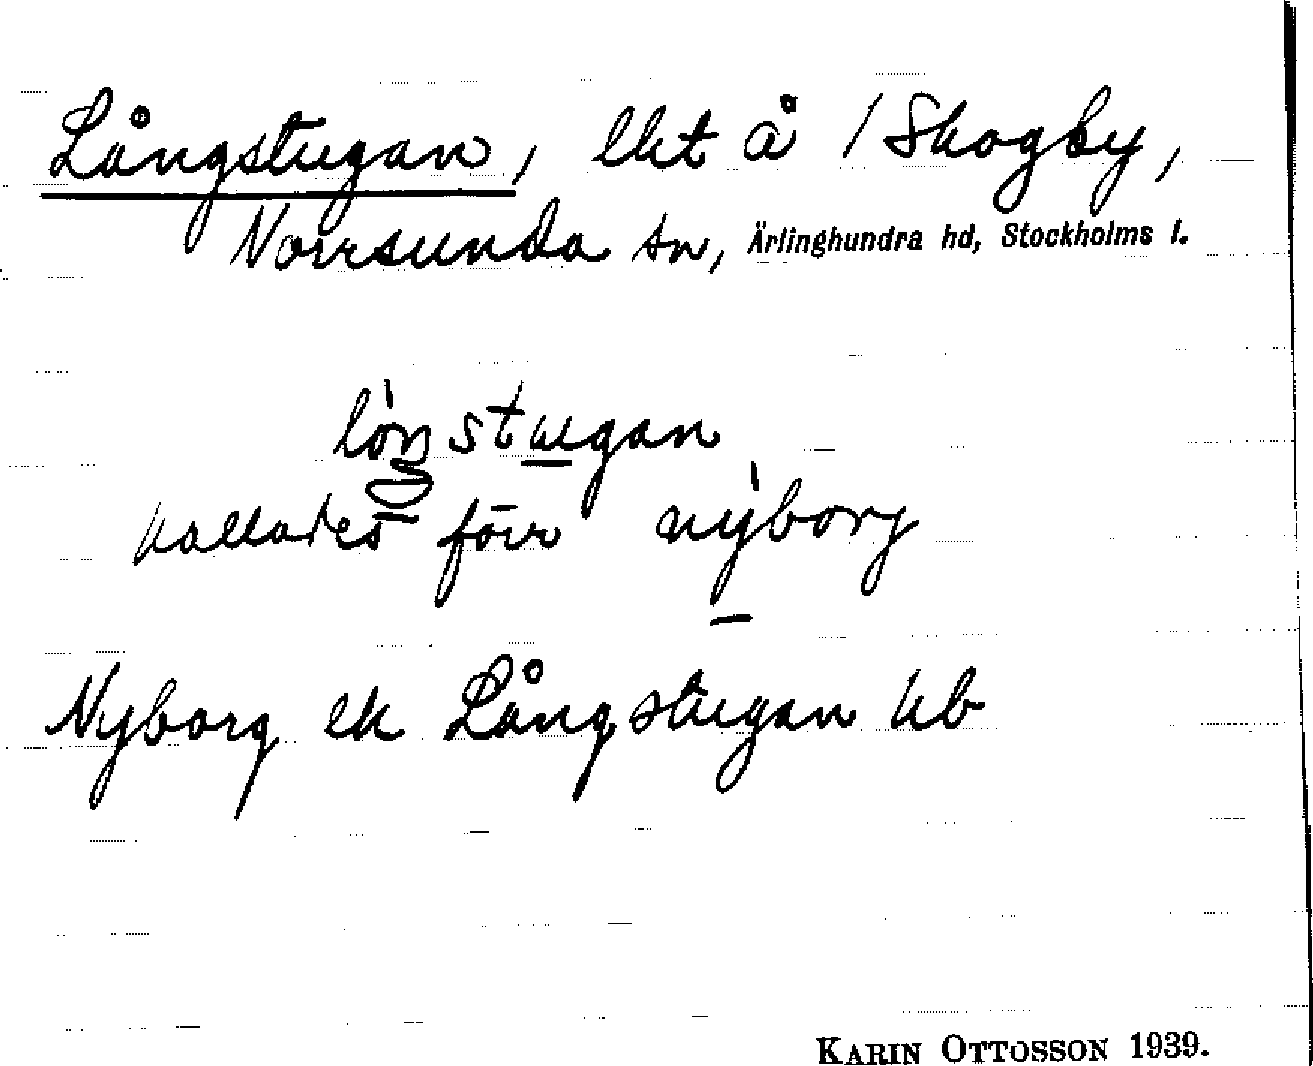 Långstugan, lht å / Skogby,
Norrsunda sn, Ärlinghundra hd, Stockholms l.
kallades förr nyborg
Nyborg ek Långstugan kb
KARIN OTTOSSON 1939.